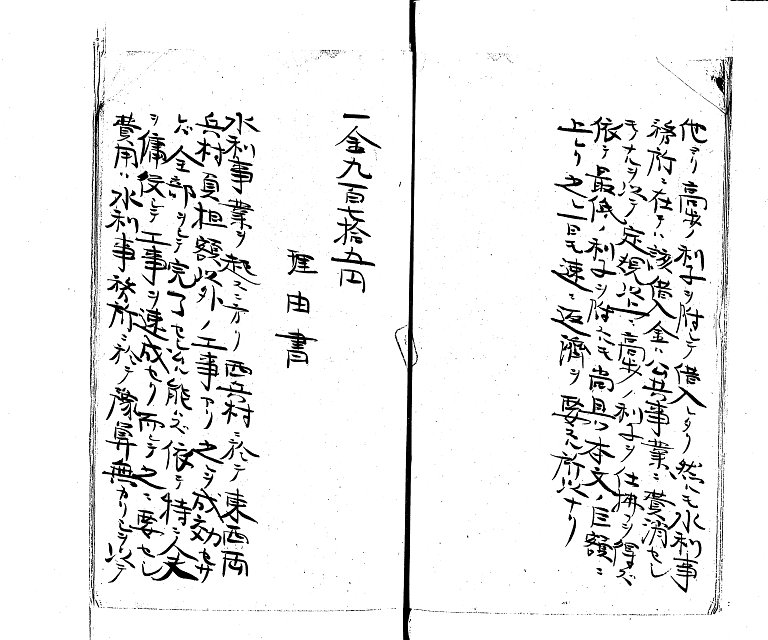 他ヨリ高歩ノ利子ヲ附シテ借入レタリ然ルニモ水利事
務所ニ在テハ該借入金ハ公共事業ニ費消セシ
モノナルヲ以テ定規以上ニ高歩ノ利子ヲ仕拂フヲ得ズ
依テ最低ノ利子ヲ附スルモ尚且ツ本文ノ巨額ニ
上レリ之レ一日モ速ニ返濟ヲ要スル所以ナリ
一金九百七拾五円
理由書
水利事業ヲ起スニ方リ西兵村ニ於テ東西両
兵村負担額以外ノ工事アリ之ヲ成効セサ
レバ全部ヲシテ完了セシムル能ハズ依テ特ニ人夫
ヲ傭役シテ工事ヲ速成セリ而シテ之ニ要セシ
費用ハ水利事務所ニ於テ豫算無カリシヲ以テ